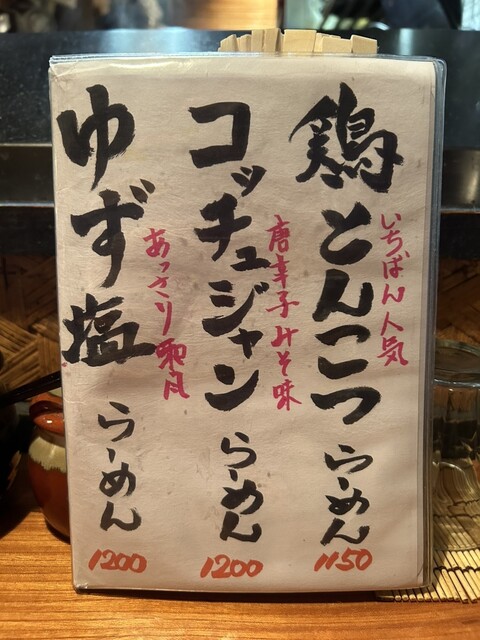 鶏とんこつらーめん
いちばん人気
1150
コッチュジャンらーめん
唐辛子みそ味
1200
ゆず塩らーめん
あっさり和風
1200